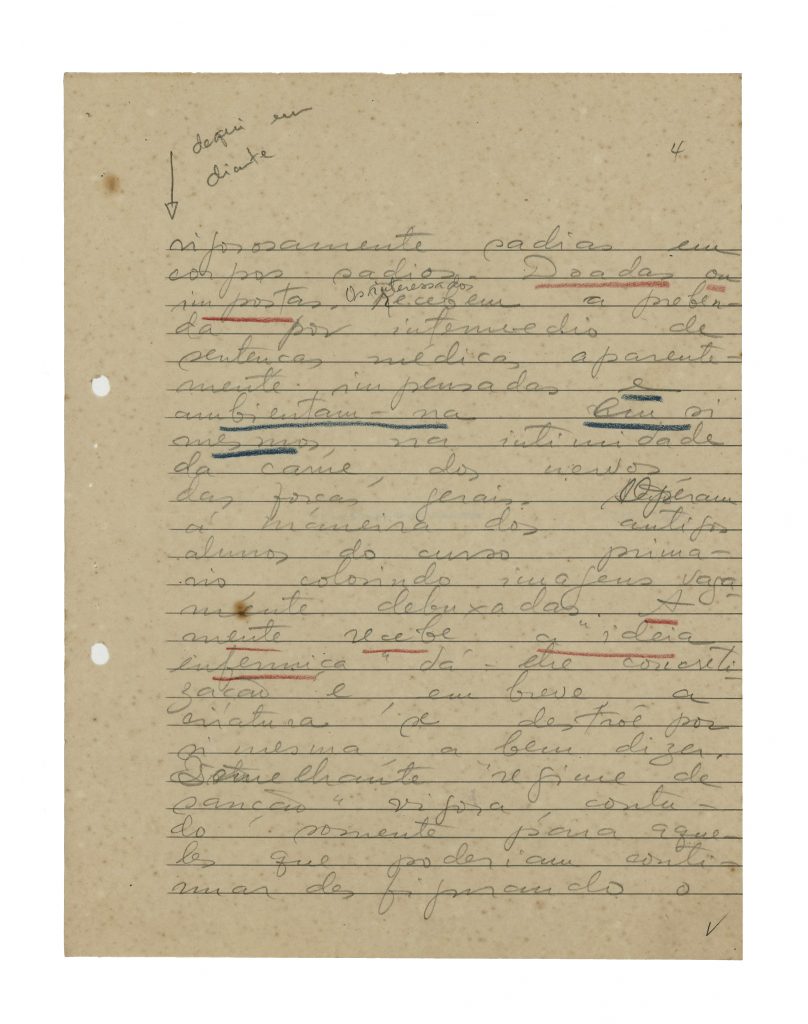 daqui em
diante
4
rigorosamente sadias em
corpos sadios. Doadas ou
impostas. Os interessados Recebem a preben-
da por intermedio de
sentenças médicas, aparente-
mente impensadas e
ambientam-na em si
mesmos na intimidade
da carne, dos nervos
das forças gerais. Operam
á maneira dos antigos
alunos do curso prima-
rio colorindo imagens vaga
mente debuxadas. A
mente recebe a "ideia
enfermiça" dá-lhe concreti
zação e em breve a
criatura se destroe por
si mesma a bem dizer.
Semelhante "regime de
sanção" vigora, contu-
do somente para aque-
les que poderiam conti-
nuar desfigurando o